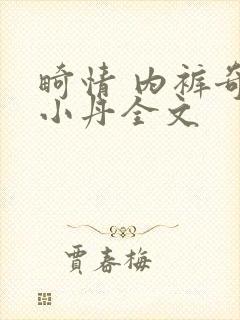 畸情 内裤奇
小丹全文
賈春梅